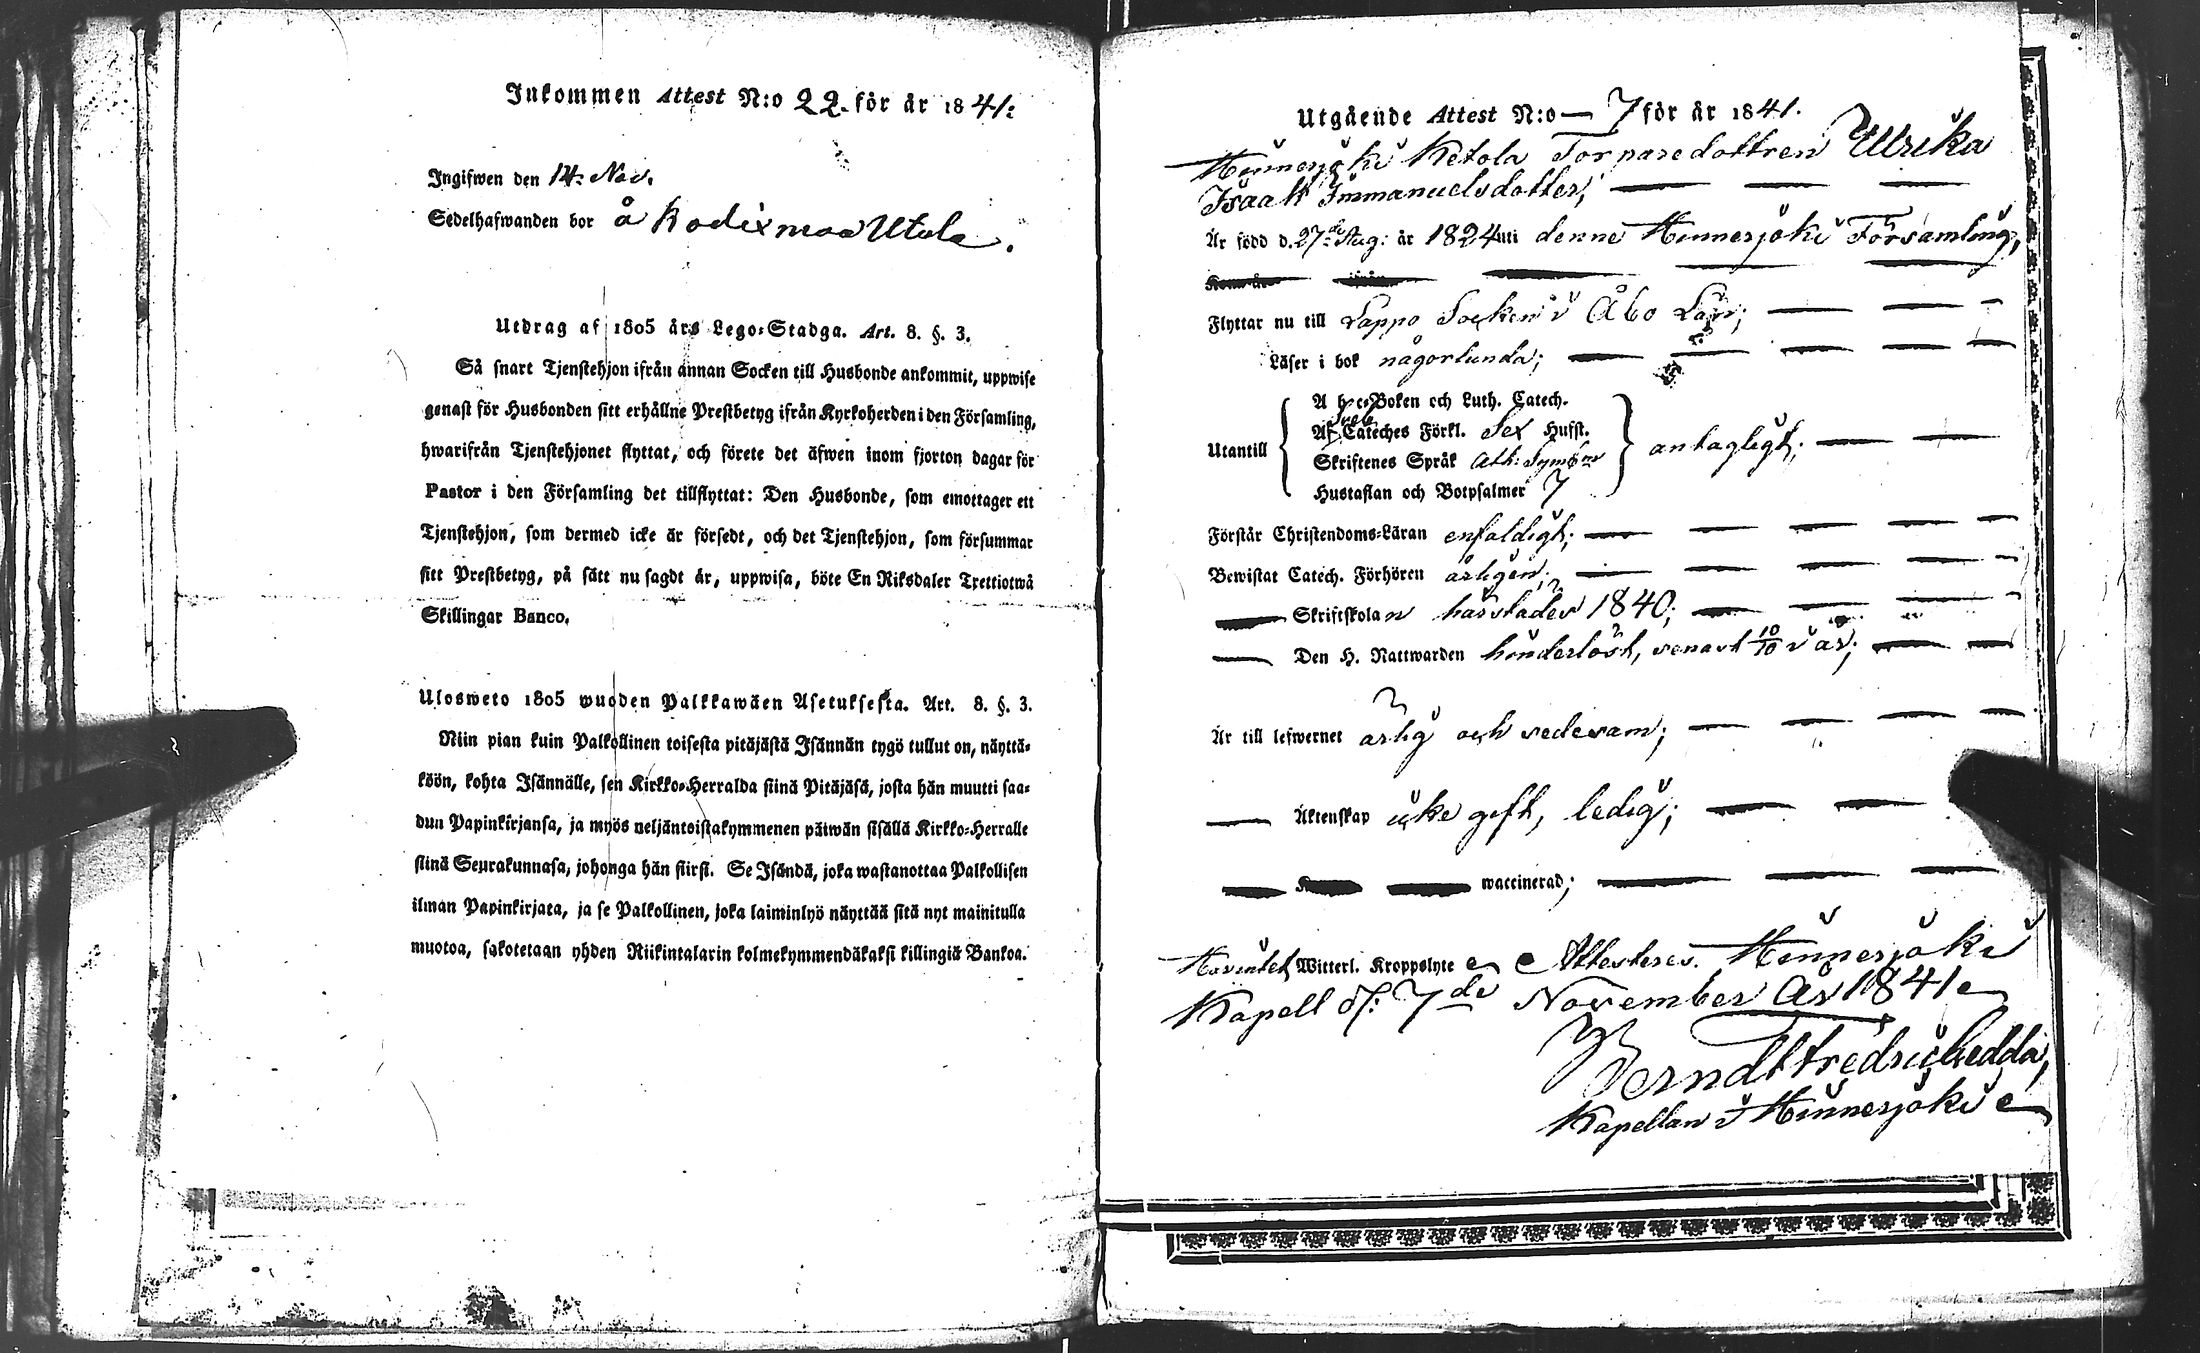 Inkommen Attest N:o 22. för år 1841:
Ingifwen den 14: Nov.
Sedelhafwanden bor å Kodixmaa Utula.
Utdrag af 1805 års Lego-Stadga. Art. 8. §. 3.
Så snart Tjenstehjon ifrån annan Socken till Husbonde ankommit, uppwise
genast för Husbonden sitt erhållne Prestbetyg ifrån Kyrkoherden i den Församling,
hwarifrån Tjenstehjonet flyttat, och förete det äfwen inom fjorton dagar för
Pastor i den Församling det tillflyttat: Den Husbonde, som emottager ett
Tjenstehjon, som dermed icke är försedt, och det Tjenstehjon, som försummar
sitt Prestbetyg, på sätt nu sagdt är, uppwisa, böte En Riksdaler Trettiotwå
Skillingar Banco.
Ulosweto 1805 wuoden Palkkawäen Asetuksesta. Art. 8. §. 3.
Niin pian kuin Palkollinen toisesta pitäjästä Isännän tygö tullut on, näyttä-
köön, kohta Isännälle, sen Kirkko-Herralda siinä Pitäjäsä, josta hän muutti saa-
dun Papinkirjansa, ja myös neljäntoistakymmenen päiwän sisällä Kirkko-Herralle
siinä Seurakunnasa, johonga hän siirsi. Se Isändä, joka wastanottaa Palkollisen
ilman Papinkirjata, ja se Palkollinen, joka laiminlyö näyttää sitä nyt mainitulla
muotoa, sakotetaan yhden Riikintalarin kolmekymmendäkaksi killingiä Bankoa.
Utgående Attest N:o — 7 för år 1841.
Hinnerjoki Ketola Torparedottren Ullrika
Isaak Immanuelsdotter,
Är född d. 27de Aug: år 1824 uti denne Hinnerjoki Församling,
Flyttar nu till Lappo Socken i Åbo Län;
Läser i bok någorlunda;
A b c-Boken och Luth. Catech.
Utantill Cateches Förkl. Sex Hufst. antagligt;
Skriftenes Språk Ath: Symb:
Hustaflan och Botpsalmer 7
Förstår Christendoms-Läran enfaldigt;
Bewistat Catech. Förhören årligen;
Skriftskolan härstädes 1840;
Den H. Nattwarden hinderlöst, senast 10/10 i år;
Är till lefwernet ärlig och sedesam;
Äktenskap icke gift, ledig;
waccinerad;
Witterl. Kroppslyte Attesteres. Hinnerjoki
Kapell d: 7de November År 1841
Berndt Fredric Hedda,
Kapellan i Hinnerjoki